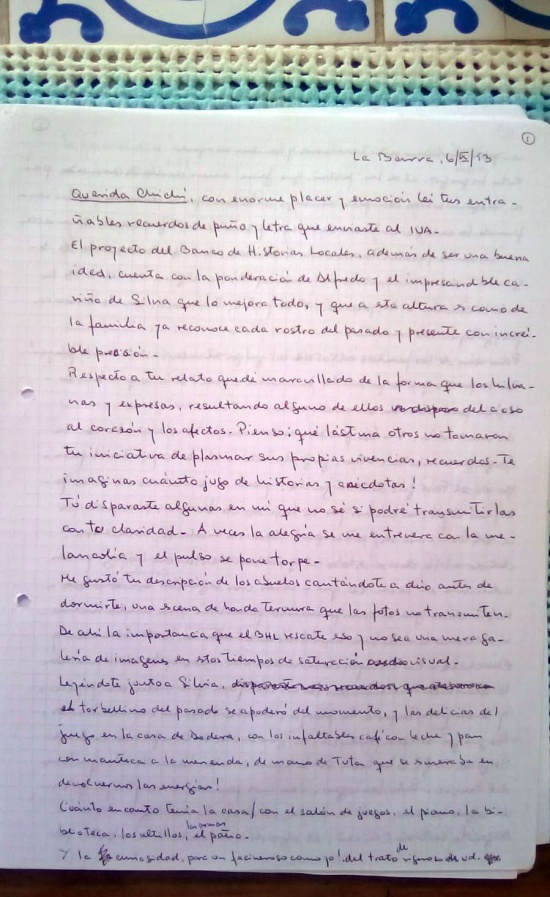 ①
La Barra, 6/IX/13
Querida Chichí, con enorme placer y emoción leí tus entra-
ñables recuerdos de puño y letra que enviaste al IUA.
El proyecto del Banco de Historias Locales, además de ser una buena
idea, cuenta con la ponderación de Alfredo y el imprescindible ca-
riño de Silvia que lo mejora todo, y que a esta altura es como de
la familia ya reconoce cada rostro del pasado y presente con increí-
ble precisión.
Respecto a tu relato quedé maravillado de la forma que los hilva-
nas y expresas, resultando alguno de ellos del caso
al corazón y los afectos. Pienso ¡qué lástima otros no tomaron
tu iniciativa de plasmar sus propias vivencias, recuerdos. Te
imaginas cuánto jugo de historias y anécdotas!
Tú disparaste algunas en mí que no sé si podré transmitirlas
con tu claridad. A veces la alegría se me entrevera con la me-
lancolía y el pulso se pone torpe.
Me gustó tu descripción de los abuelos cantándote a dúo antes de
dormirte, una escena de honda ternura que las fotos no transmiten.
De ahí la importancia que el BHL rescate eso y no sea una mera ga-
lería de imágenes en estos tiempos de saturación visual.
Leyéndote junto a Silvia,
el torbellino del pasado se apoderó del momento, y las delicias del
juego en la casa de Dodera, con los infaltables café con leche y pan
con manteca a la merienda, de mano de Tuta que se esmeraba en
devolvernos las energías!
Cuánto encanto tenía la casa/ con el salón de juegos, el piano, la bi-
blioteca, los altillos, las armas el patio.
Y la curiosidad, para un facineroso como yo! del trato de ud.